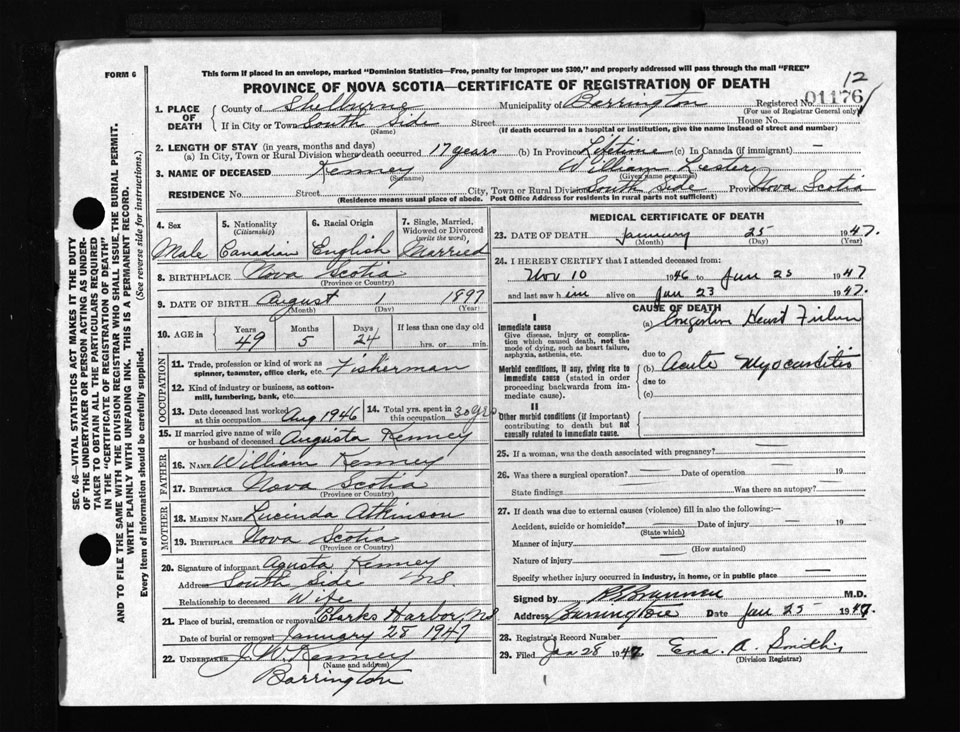 FORM 6
This form if placed in an envelope, marked "Dominion Statistics—Free, penalty for improper use $300," and properly addressed will pass through the mail "FREE"
PROVINCE OF NOVA SCOTIA—CERTIFICATE OF REGISTRATION OF DEATH
12
1. PLACE OF DEATH
County of Shelburne Municipality of Barrington Registered No. 01176
(For use of Registrar General only)
If in City or Town South Side Street House No.
(Name) (If death occurred in a hospital or institution, give the name instead of street and number)
2. LENGTH OF STAY (in years, months and days)
(a) In City, Town or Rural Division where death occurred 17 years (b) In Province Lifetime (c) In Canada (if immigrant) —
3. NAME OF DECEASED Kenney William Lester
(Surname) (Given name or names)
RESIDENCE No. Street City, Town or Rural Division South Side Province Nova Scotia
(Residence means usual place of abode. Post Office Address for residents in rural parts not sufficient)
SEC. 46—VITAL STATISTICS ACT MAKES IT THE DUTY
OF THE UNDERTAKER OR PERSON ACTING AS UNDER-
TAKER TO OBTAIN ALL THE PARTICULARS REQUIRED
IN THE "CERTIFICATE OF REGISTRATION OF DEATH"
AND TO FILE THE SAME WITH THE DIVISION REGISTRAR WHO SHALL ISSUE THE BURIAL PERMIT.
WRITE PLAINLY WITH UNFADING INK. THIS IS A PERMANENT RECORD.
Every item of information should be carefully supplied. (See reverse side for instructions.)
4. Sex
5. Nationality (Citizenship)
6. Racial Origin
7. Single, Married, Widowed or Divorced (write the word)
Male Canadian English Married
8. BIRTHPLACE Nova Scotia
(Province or Country)
9. DATE OF BIRTH August 1 1897
(Month) (Day) (Year)
10. AGE in Years 49 Months 5 Days 24 If less than one day old
hrs. or min.
OCCUPATION
11. Trade, profession or kind of work as spinner, teamster, office clerk, etc. Fisherman
12. Kind of industry or business, as cotton-mill, lumbering, bank, etc.
13. Date deceased last worked at this occupation Aug 1946
14. Total yrs. spent in this occupation 30 yrs
15. If married give name of wife or husband of deceased Augusta Kenney
FATHER
16. NAME William Kenney
17. BIRTHPLACE Nova Scotia
(Province or Country)
MOTHER
18. MAIDEN NAME Lucinda Atkinson
19. BIRTHPLACE Nova Scotia
(Province or Country)
20. Signature of informant Agusta Kenney
Address South Side NS
Relationship to deceased Wife
21. Place of burial, cremation or removal Clarks Harbor, NS
Date of burial or removal January 28 1947
22. UNDERTAKER J. W. Kenney
(Name and address)
Barrington
MEDICAL CERTIFICATE OF DEATH
23. DATE OF DEATH January 25 1947.
(Month) (Day) (Year)
24. I HEREBY CERTIFY that I attended deceased from:
Nov 10 1946 to Jan 25 1947
and last saw him alive on Jan 23 1947.
CAUSE OF DEATH
I
Immediate cause
Give disease, injury or complication which caused death, not the mode of dying, such as heart failure, asphyxia, asthenia, etc.
(a) Congestive Heart Failure
due to
Morbid conditions, if any, giving rise to immediate cause (stated in order proceeding backwards from immediate cause).
(b) Acute Myocarditis
due to
(c)
II
Other morbid conditions (if important) contributing to death but not causally related to immediate cause.
25. If a woman, was the death associated with pregnancy?
26. Was there a surgical operation? — Date of operation — 19
State findings Was there an autopsy?
27. If death was due to external causes (violence) fill in also the following:—
Accident, suicide or homicide? Date of injury — 19
(State which)
Manner of injury
(How sustained)
Nature of injury
Specify whether injury occurred in industry, in home, or in public place
Signed by M.D.
Address Date Jan 25 1947.
28. Registrar's Record Number
29. Filed Jan 28 1947 Ena. A. Smith
(Division Registrar)